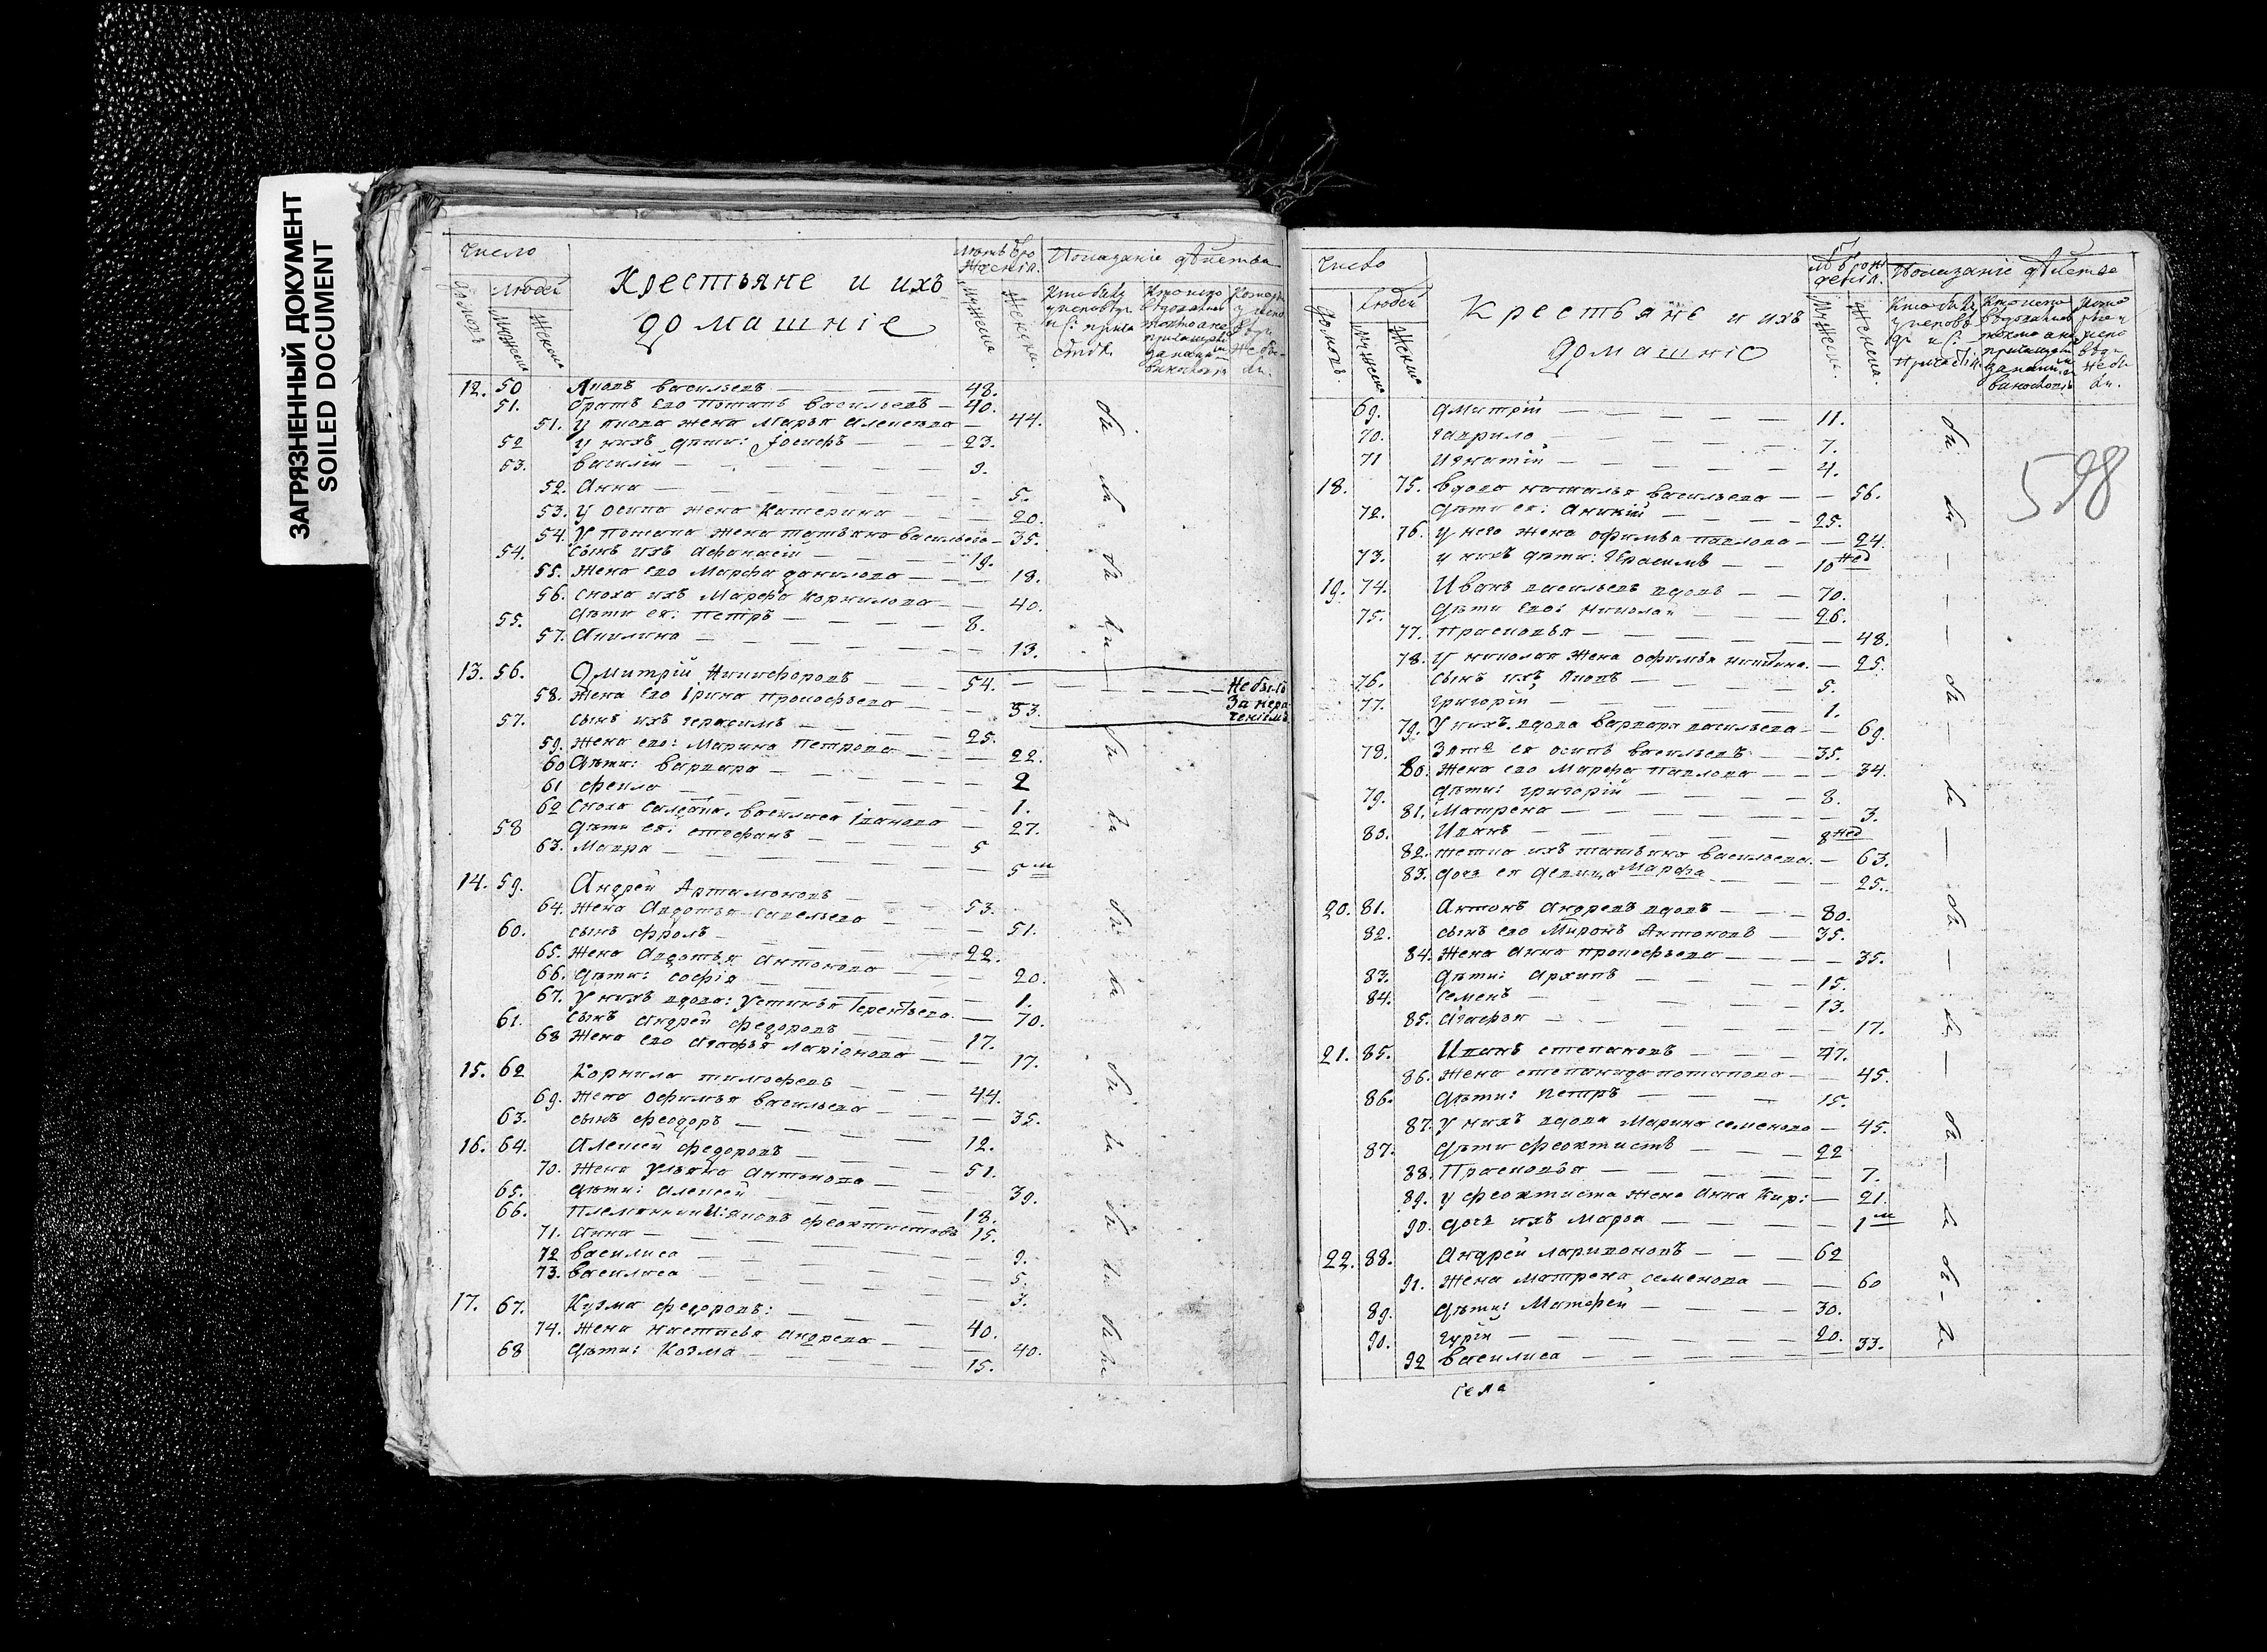 ЗАГРЯЗНЕННЫЙ ДОКУМЕНТ
SOILED DOCUMENT
Число
людей
домовъ
мужеска
женска
Крестьяне и ихъ
домашніе
Показаніе дѣйства
12. 50 Яковъ Васильевъ — 48.
51. братъ его Потапъ Васильевъ — 40.
51. У Якова жена Марья Алексѣева — 44.
52 у нихъ дѣти: Іосифъ — 23.
53. Василій — 9.
52. Анна — 5.
53. У Осипа жена Катерина — 20.
54. У Потапа жена Татьяна Васильева — 35.
54. Сынъ ихъ Афанасій — 19.
55. Жена его Марфа Данилова — 18.
56. Сноха ихъ Марфа Корнилова — 40.
55. Дѣти ея: Петръ — 8.
57. Акилина — 13.
13. 56. Дмитрій Никифоровъ — 54. — Не былъ
58. Жена его Ірина Прокофьева — 53. За нера
57. Сынъ ихъ Герасимъ — 25. ченіемъ
59. Жена его: Марина Петрова — 22.
60 Дѣти: Варвара — 2
61 Фекла — 1.
62 Сноха Василиса Іванова — 27.
58 Дѣти ея: Стефанъ — 5
63. Мавра — 5 м
14. 59. Андрей Артамоновъ — 53.
64. Жена Авдотья Савельева — 51.
60. Сынъ Фролъ — 22.
65. Жена Авдотья Антонова — 20.
66. Дѣти: Софія — 1.
67. У нихъ вдова: Устинья Терентьева — 70.
61. Сынъ Андрей Федоровъ — 17.
68 Жена его Агафья Ларіонова — 17.
15. 62 Корнила Тимофеевъ — 44.
69. Жена Офимья Васильева — 35.
63. Сынъ Феодоръ — 12.
16. 64. Алексей Федоровъ — 51.
70. Жена Ульяна Антонова — 39.
65. Дѣти: Алексей — 18.
66. Племянники: Яковъ Феоктистовъ 15.
71. Анна — 9.
72 Василиса — 5.
73. Василиса — 3.
17. 67. Кузма Федоровъ: — 40.
74. Жена Настасья Андреева — 40.
68 Дѣти: Козма — 15.
Число
людей
домовъ.
мужеска
женска
Крестьяне и ихъ
домашніе
Показаніе дѣйства
598
69. Дмитрій — 11.
70. Гаврило — 7.
71 Игнатій — 4.
18. 75. Вдова Наталья Васильева — 56.
72. Дѣти ея: Аникій — 25.
76. У него жена Офимья Павлова — 24.
73. у нихъ дѣти: Герасимъ — 10 нед
19. 74. Иванъ Васильевъ вдовъ — 70.
75. Дѣти его: Николай — 26.
77. Прасковья — 48.
78. У Николая жена Офимья Никитина. — 25.
76. Сынъ ихъ Яковъ — 5.
77. Григорій — 1.
79. У нихъ вдова Варвара Васильева — 69.
78. Зять ея Осипъ Васильевъ — 35.
80. Жена его Марфа Павлова — 34.
79. Дѣти: Григорій — 8.
81. Матрена — 3.
80. Иванъ — 8 нед
82. Тетка ихъ Татьяна Васильева. — 63.
83. Дочь ея девица Марфа — 25.
20. 81. Антонъ Андреевъ вдовъ — 80.
82. Сынъ его Миронъ Антоновъ — 35.
84. Жена Анна Прокофьева — 35.
83. Дѣти: Архипъ — 15.
84. Семенъ — 13.
85. Агафья — 17.
21. 85. Иванъ Степановъ — 47.
86. Жена Степанида Потапова — 45.
86. Дѣти: Петръ — 15.
87. У нихъ вдова Марина Семенова — 45.
87. Дѣти Феоктистъ — 22
88. Прасковья — 7.
89. У Феоктиста жена Анна Кир: — 21.
90. Дочь ихъ Марфа — 1 м
22. 88. Андрей Ларивоновъ — 62
91. Жена Матрена Семенова — 60
89. Дѣти: Матфей — 30.
90. Гурій — 20.
92 Василиса — 33.
села